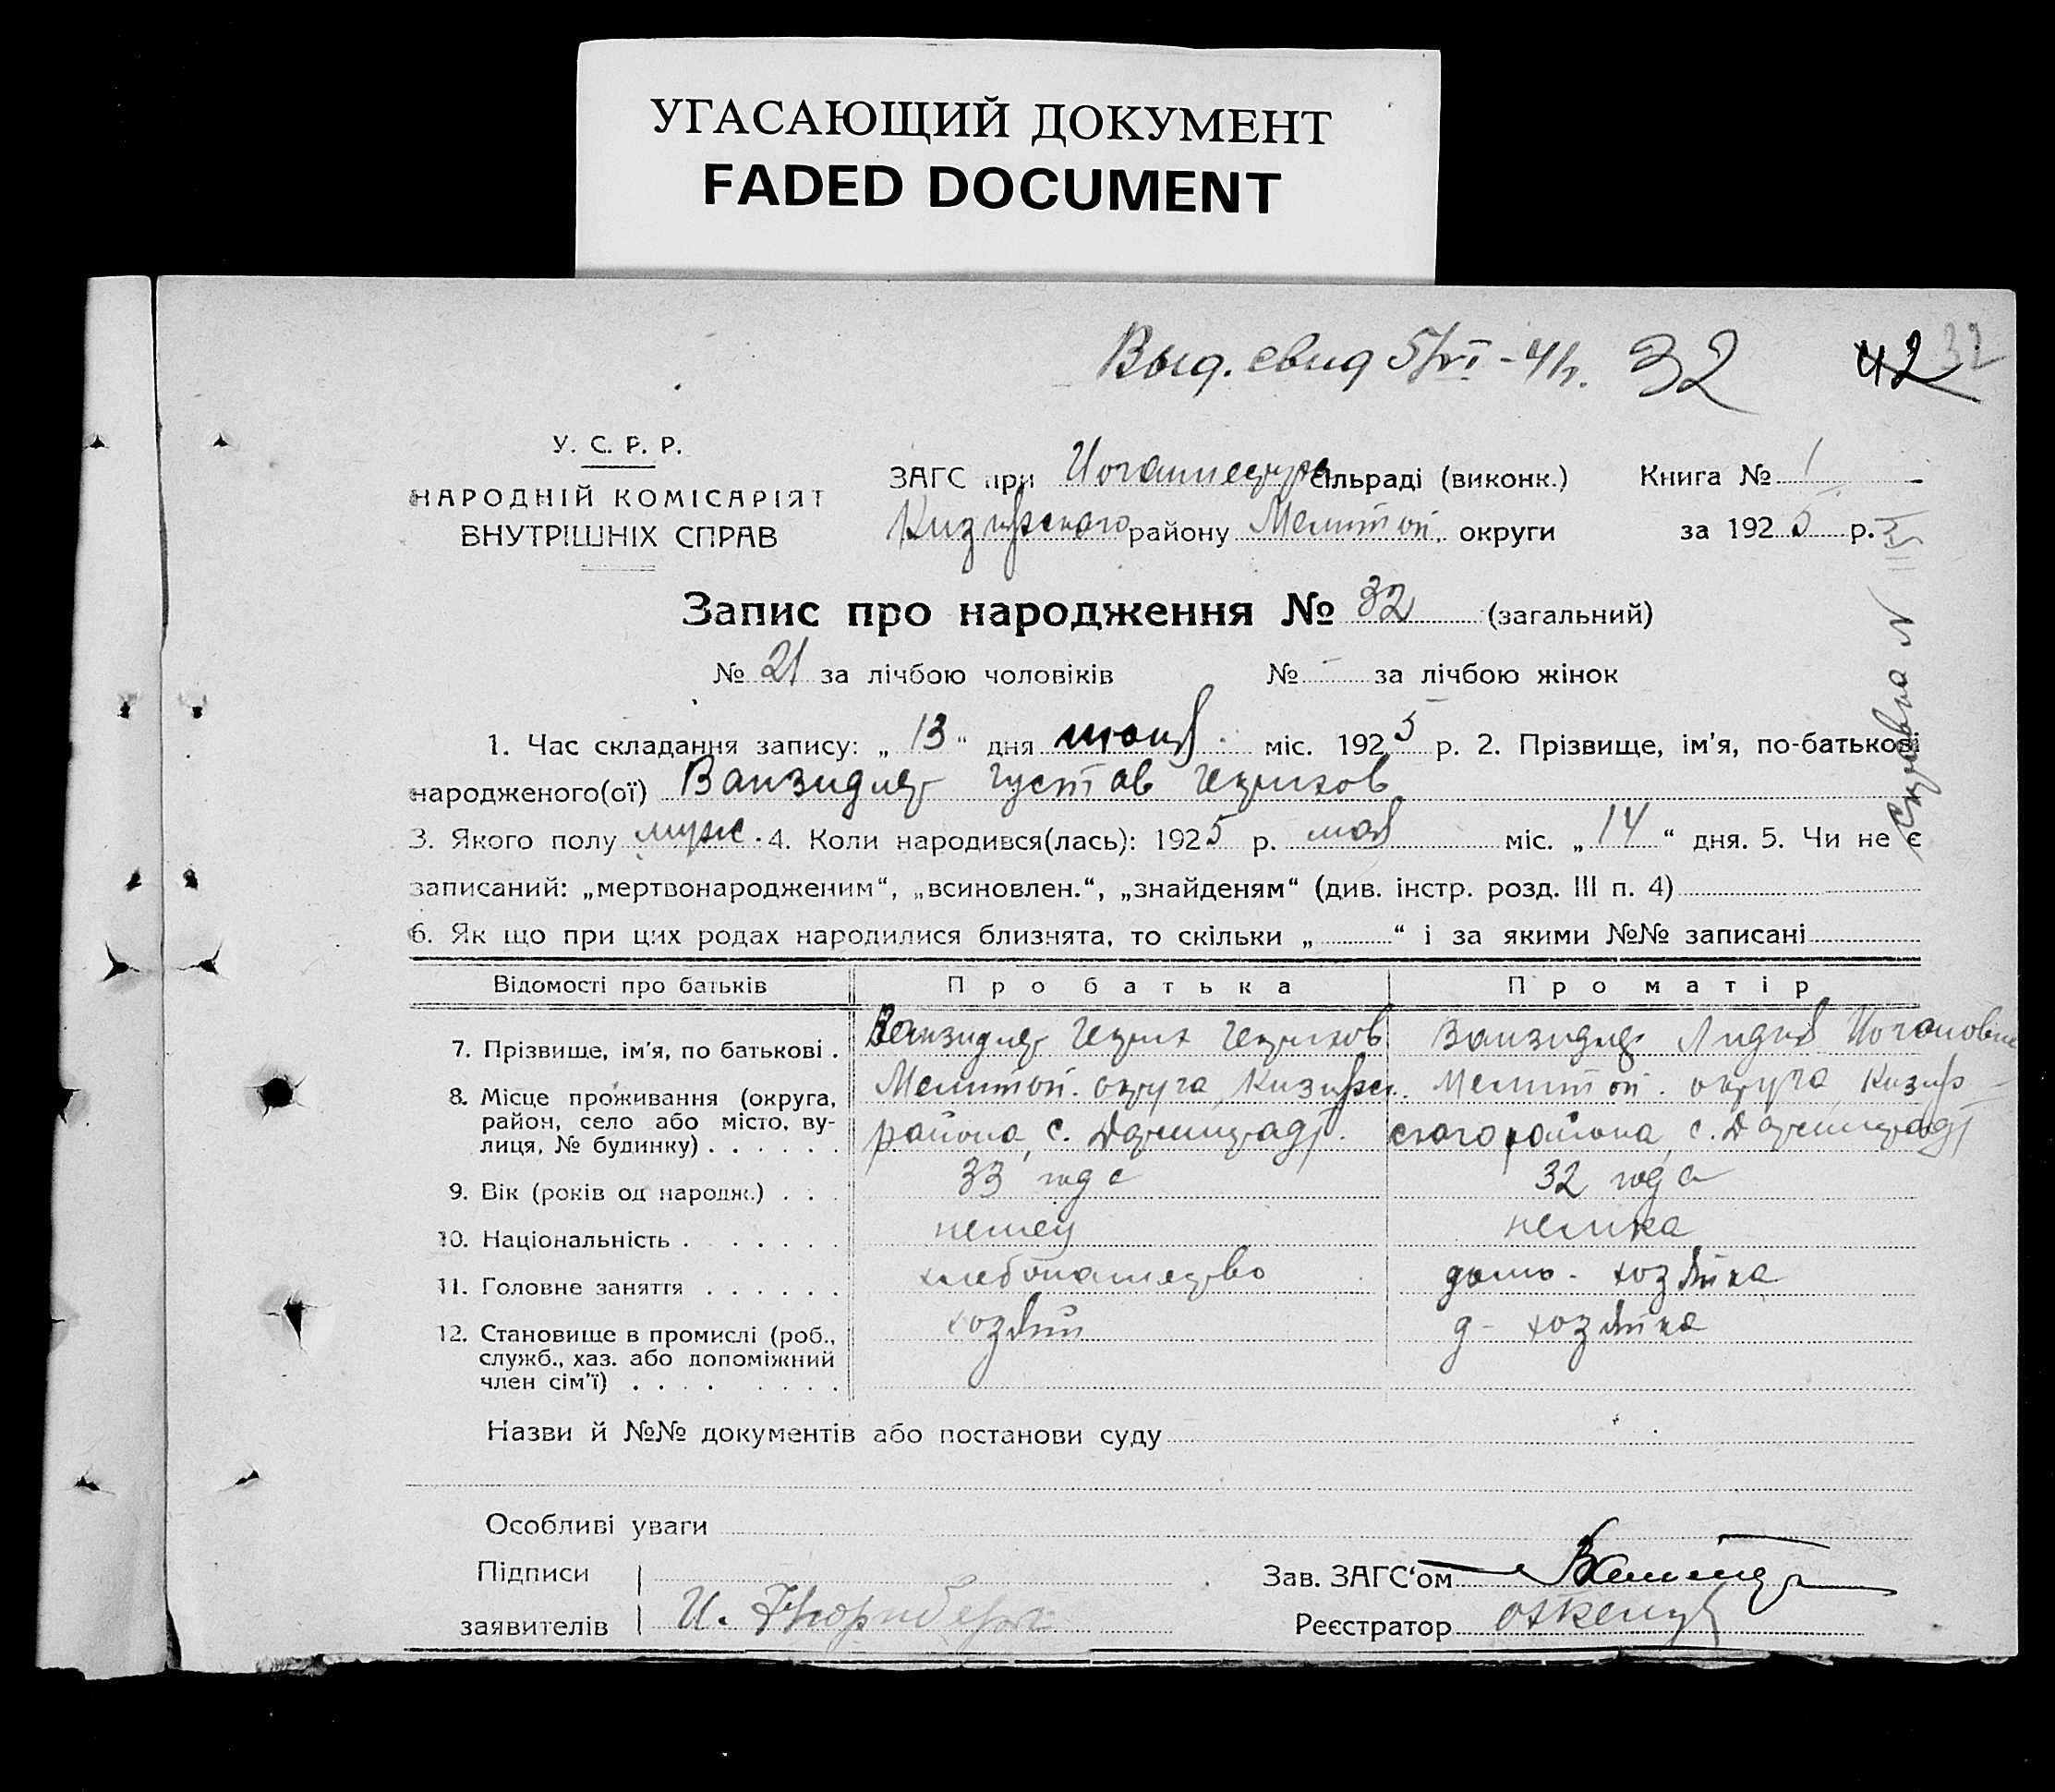 УГАСАЮЩИЙ ДОКУМЕНТ
FADED DOCUMENT
Выд. свид 5/VI-41г. 32 42 32
У. С. Р. Р.
НАРОДНІЙ КОМІСАРІЯТ
ВНУТРІШНІХ СПРАВ
ЗАГС при сільраді (виконк.) Книга № 1
району Мелитоп. округи за 1925 р.
Запис про народження № 32 (загальний)
№ 21 за лічбою чоловіків № - за лічбою жінок
Справка №
1. Час складання запису: „ 13 “ дня июня міс. 1925 р. 2. Прізвище, ім'я, по-батькові
народженого(ої) Ванзидлер Густав Генрихов
3. Якого полу муж. 4. Коли народився(лась): 1925 р. мая міс. „ 14 “ дня. 5. Чи не є
записаний: „мертвонародженим“, „всиновлен.“, „знайденям“ (див. інстр. розд. III п. 4)
6. Як що при цих родах народилися близнята, то скільки „ “ і за якими №№ записані
Відомості про батьків Про батька Про матір
7. Прізвище, ім'я, по батькові . Ванзидлер Генрих Генрихов Ванзидлер Лидия Иогановна
8. Місце проживання (округа, Мелитоп. округа, Мелитоп. округа,
район, село або місто, ву-
лиця, № будинку) . . . . . . района, с. района, с.
9. Вік (років од народж.) . . . 33 года 32 года
10. Національність . . . . . . немец немка
11. Головне заняття . . . . . . хлебопашество домо-хозяйка
12. Становище в промислі (роб., хозяин д-хозяйка
служб., хаз. або допоміжний
член сім'ї) . . . . . . . .
Назви й №№ документів або постанови суду
Особливі уваги
Підписи
заявителів И.
Зав. ЗАГС'ом
Реєстратор